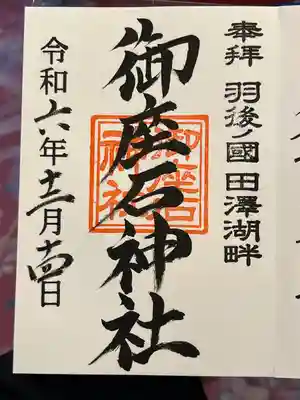 奉拝 羽後ノ國田澤湖畔
御座石神社
御座石神社
令和六年十二月十四日